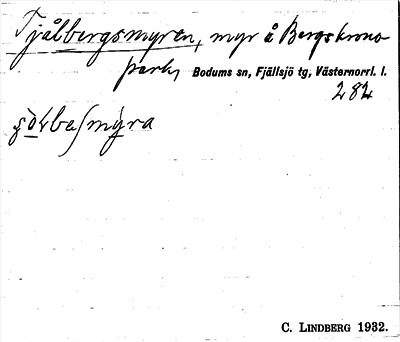 Fjålbergsmyren, myr å Bergs krono
park, Bodums sn, Fjällsjö tg, Västernorrl. l.
282
C. LINDBERG 1932.